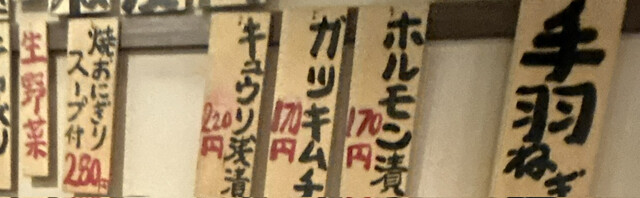 手羽ねぎ
ホルモン漬
170円
ガツキムチ
170円
キュウリ浅漬
220円
焼おにぎり
スープ付
280円
生野菜